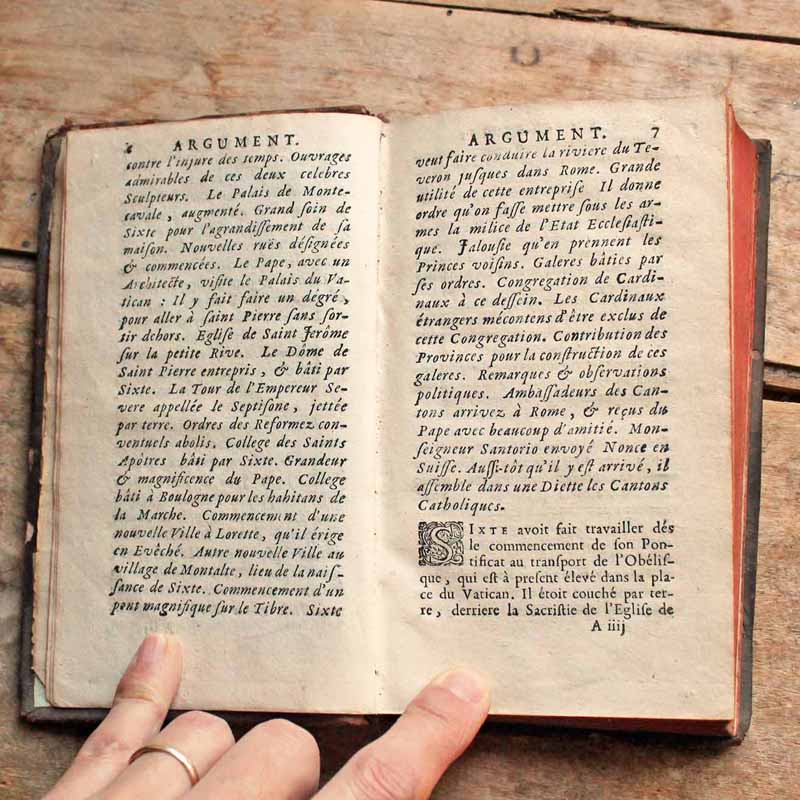 6 ARGUMENT.
contre l'injure des temps. Ouvrages
admirables de ces deux celebres
Sculpteurs. Le Palais de Monte-
cavale, augmenté. Grand ſoin de
Sixte pour l'agrandiſſement de ſa
maiſon. Nouvelles ruës déſignées
& commencées. Le Pape, avec un
Architecte, viſite le Palais du Va-
tican : Il y fait faire un dégré,
pour aller à ſaint Pierre ſans ſor-
tir dehors. Egliſe de Saint Jerôme
ſur la petite Rive. Le Dôme de
Saint Pierre entrepris, & bâti par
Sixte. La Tour de l'Empereur Se-
vere appellée le Septiſone, jettée
par terre. Ordres des Reformez con-
ventuels abolis. College des Saints
Apôtres bâti par Sixte. Grandeur
& magnificence du Pape. College
bâti à Boulogne pour les habitans de
la Marche. Commencement d'une
nouvelle Ville à Lorette, qu'il érige
en Evêché. Autre nouvelle Ville au
village de Montalte, lieu de la naiſ-
ſance de Sixte. Commencement d'un
pont magnifique ſur le Tibre. Sixte
ARGUMENT. 7
veut faire conduire la riviere du Te-
veron juſques dans Rome. Grande
utilité de cette entrepriſe Il donne
ordre qu'on faſſe mettre ſous les ar-
mes la milice de l'Etat Eccleſiaſti-
que. Jalouſie qu'en prennent les
Princes voiſins. Galeres bâties par
ſes ordres. Congregation de Cardi-
naux à ce deſſein. Les Cardinaux
étrangers mécontens d'être exclus de
cette Congregation. Contribution des
Provinces pour la conſtruction de ces
galeres. Remarques & obſervations
politiques. Ambaſſadeurs des Can-
tons arrivez à Rome, & reçus du
Pape avec beaucoup d'amitié. Mon-
ſeigneur Santorio envoyé Nonce en
Suiſſe. Auſſi-tôt qu'il y eſt arrivé, il
aſſemble dans une Diette les Cantons
Catholiques.
SIXTE avoit fait travailler dés
le commencement de ſon Pon-
tificat au tranſport de l'Obéliſ-
que, qui eſt à preſent élevé dans la pla-
ce du Vatican. Il étoit couché par ter-
re, derriere la Sacriſtie de l'Egliſe de
A iiij